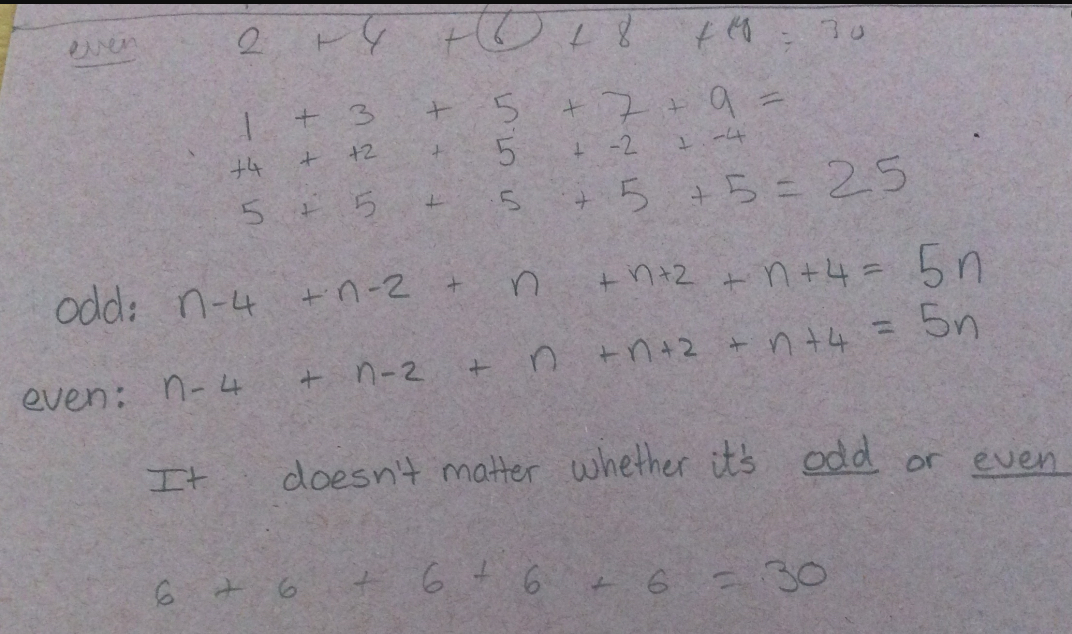 even 2 + 4 + 6 + 8 + 10 = 30
1 + 3 + 5 + 7 + 9 =
+4 + +2 + 5 + -2 + -4
5 + 5 + 5 + 5 + 5 = 25
odd: n-4 + n-2 + n + n+2 + n+4 = 5n
even: n-4 + n-2 + n + n+2 + n+4 = 5n
It doesn't matter whether it's odd or even
6 + 6 + 6 + 6 + 6 = 30